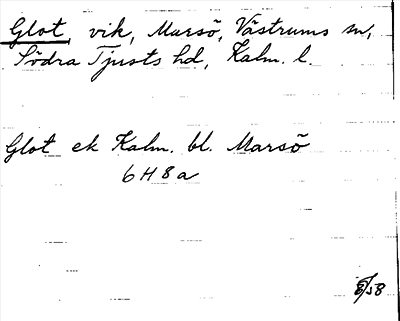 Glot, vik, Marsö, Västrums sn,
Södra Tjusts hd, Kalm. l.
Glot ek Kalm. bl. Marsö
6H8a